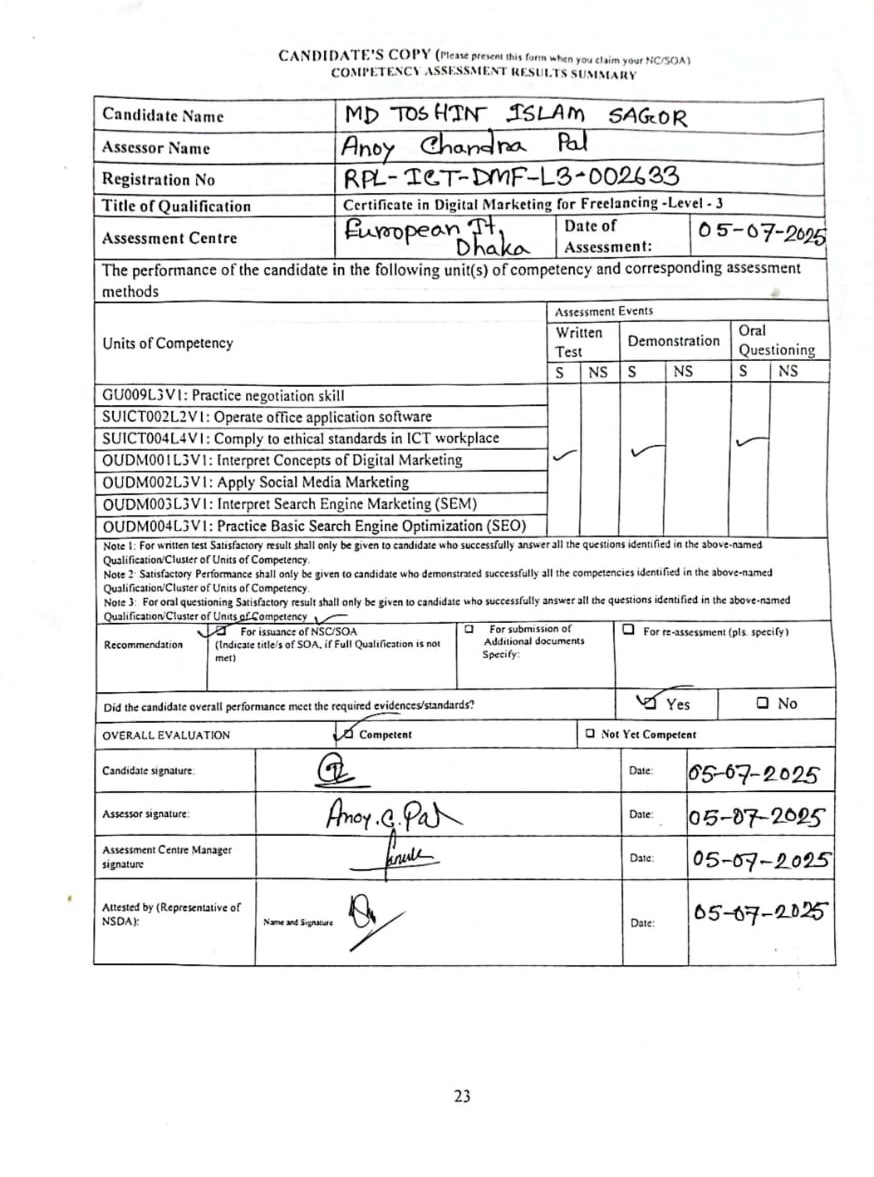 CANDIDATE'S COPY (Please present this form when you claim your NC/SOA)
COMPETENCY ASSESSMENT RESULTS SUMMARY
Candidate Name MD TOSHIN ISLAM SAGOR
Assessor Name Anoy Chandra Pal
Registration No RPL-ICT-DMF-L3-002633
Title of Qualification Certificate in Digital Marketing for Freelancing -Level - 3
Assessment Centre European It, Dhaka Date of Assessment: 05-07-2025
The performance of the candidate in the following unit(s) of competency and corresponding assessment
methods
Units of Competency
Assessment Events
Written Test Demonstration Oral Questioning
S NS S NS S NS
GU009L3V1: Practice negotiation skill
SUICT002L2V1: Operate office application software
SUICT004L4V1: Comply to ethical standards in ICT workplace
OUDM001L3V1: Interpret Concepts of Digital Marketing
OUDM002L3V1: Apply Social Media Marketing
OUDM003L3V1: Interpret Search Engine Marketing (SEM)
OUDM004L3V1: Practice Basic Search Engine Optimization (SEO)
Note 1: For written test Satisfactory result shall only be given to candidate who successfully answer all the questions identified in the above-named
Qualification/Cluster of Units of Competency.
Note 2: Satisfactory Performance shall only be given to candidate who demonstrated successfully all the competencies identified in the above-named
Qualification/Cluster of Units of Competency.
Note 3: For oral questioning Satisfactory result shall only be given to candidate who successfully answer all the questions identified in the above-named
Qualification/Cluster of Units of Competency
Recommendation
For issuance of NSC/SOA
(Indicate title/s of SOA, if Full Qualification is not
met)
For submission of
Additional documents
Specify:
For re-assessment (pls. specify)
Did the candidate overall performance meet the required evidences/standards? Yes No
OVERALL EVALUATION Competent Not Yet Competent
Candidate signature: Date: 05-07-2025
Assessor signature: Anoy.C.Pal Date: 05-07-2025
Assessment Centre Manager
signature Date: 05-07-2025
Attested by (Representative of
NSDA): Name and Signature Date: 05-07-2025
23